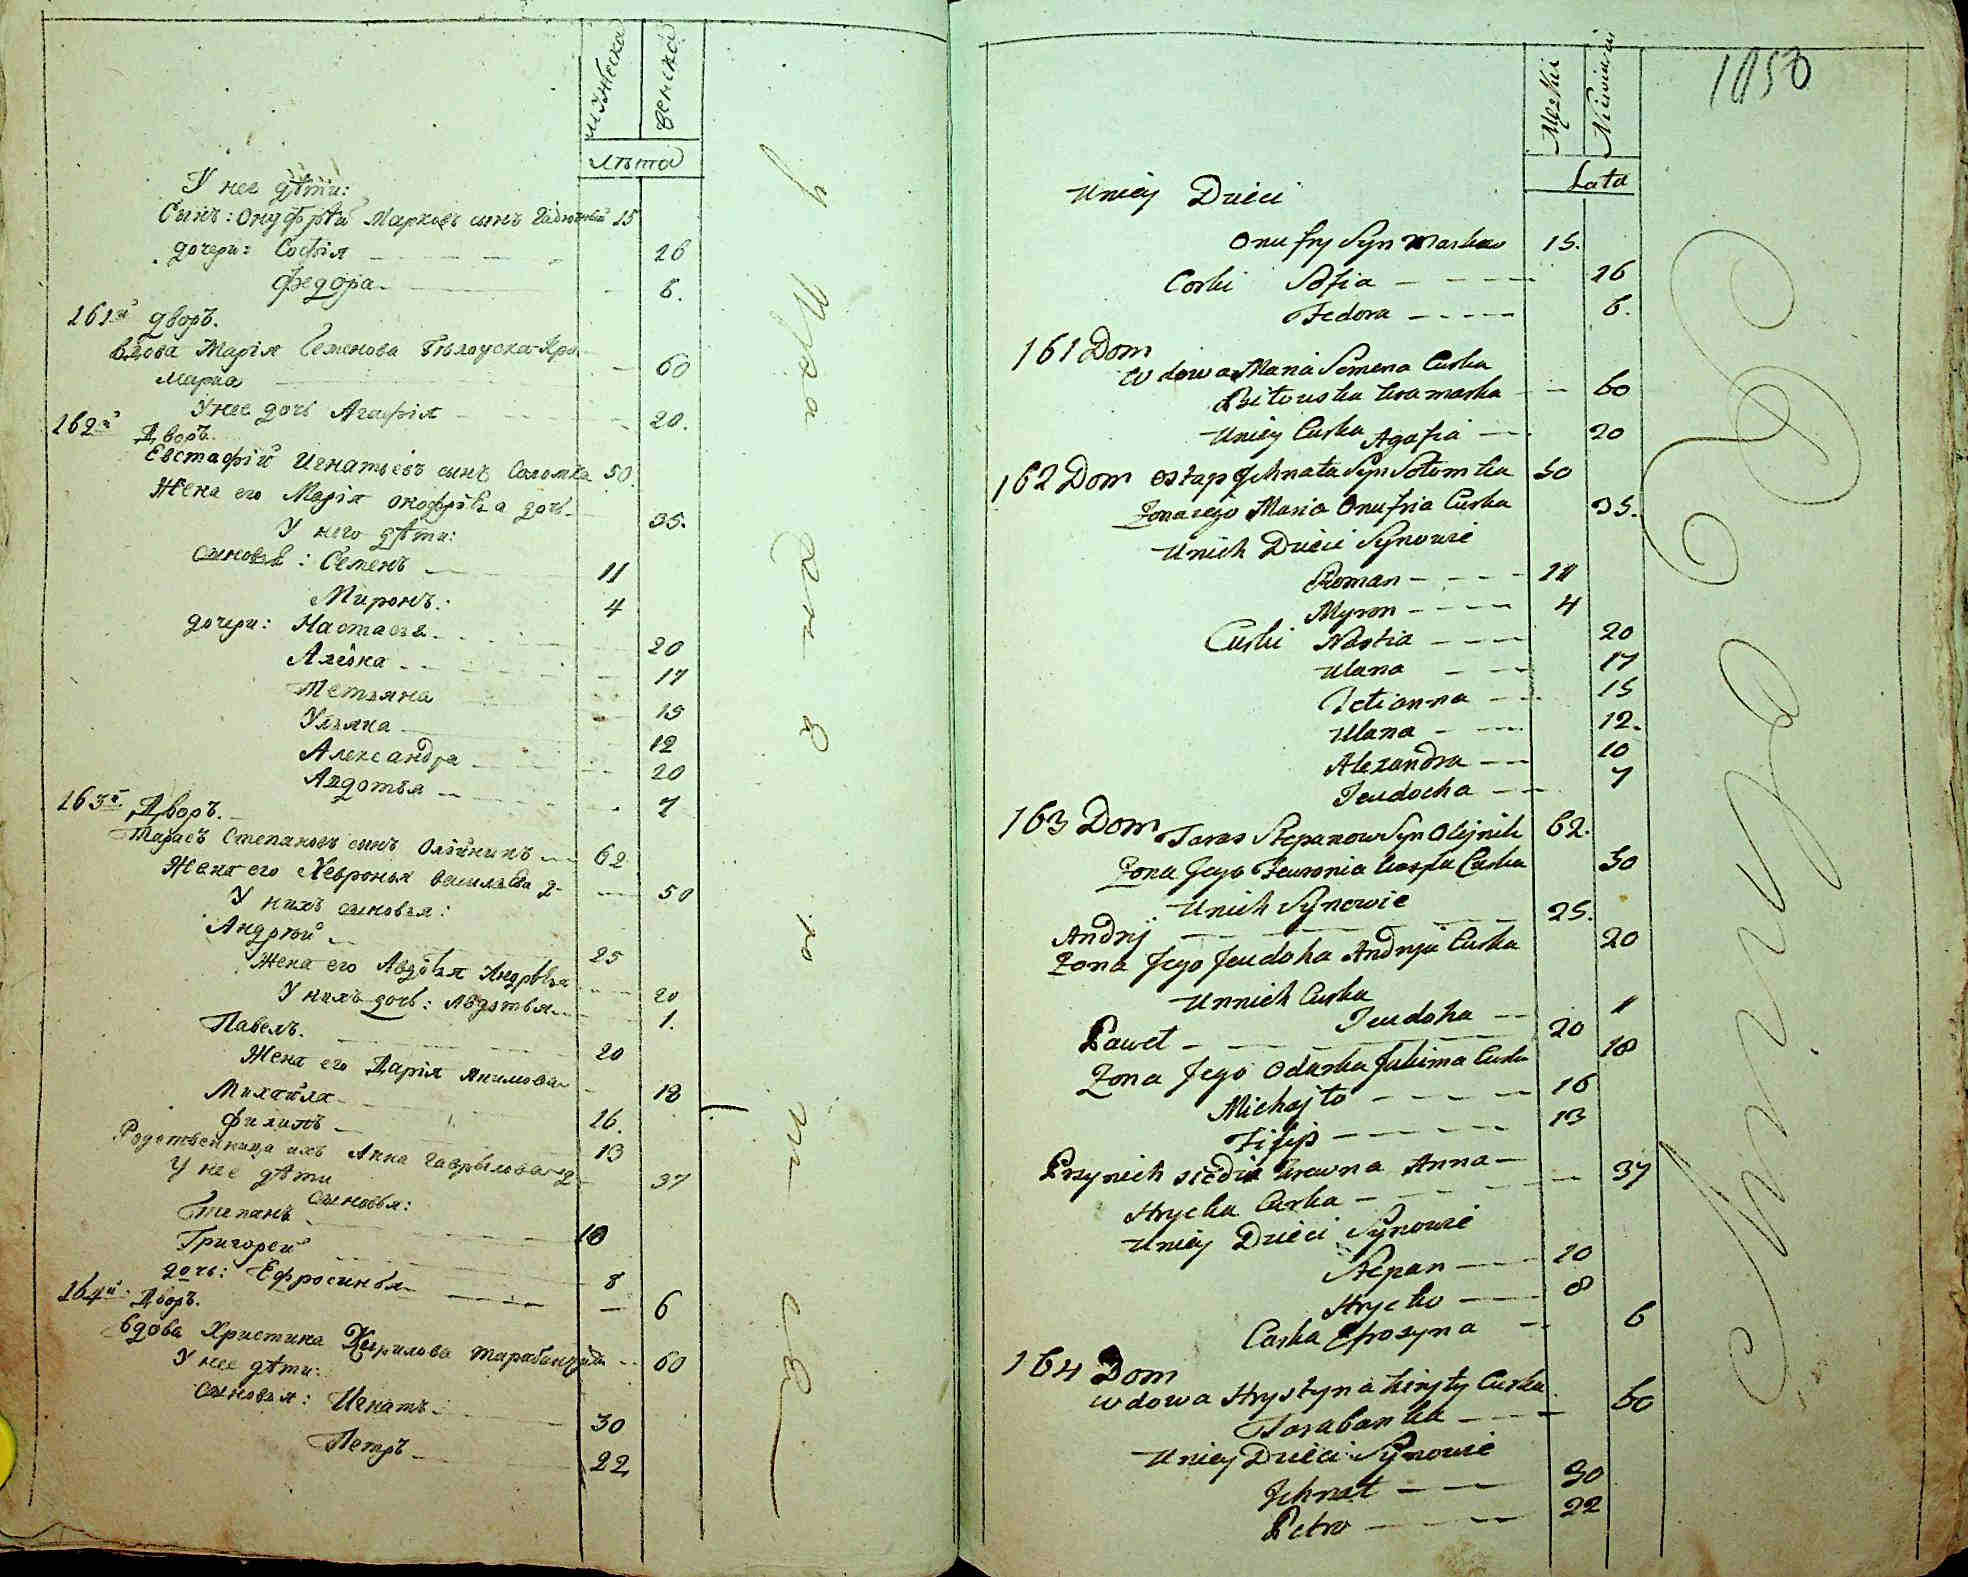 мужеска
женска
лѣта
У нее дѣти:
Сынъ: Онуфрѣй Марковъ сынъ 15
дочери: Софія 26
Федора 6.
161й дворъ.
вдова Марія Семенова Бѣлоуска Кра- 60
марка
У нее дочь Агафія 20.
162й Дворъ.
Евстафій Игнатьевъ сынъ Соломка 50.
Жена его Марія онофрѣва дочь 35.
У него дѣти:
сыновья: Семенъ 11
Миронъ: 4
дочери: Настасья 20
Алёна 17
Тетьяна 15
Ульяна 12
Александра 20
Авдотья 7
163й Дворъ.
Тарасъ Степановъ сынъ Олѣйникъ 62
Жена его Хевронья Васильева д 50
У нихъ сыновья:
Андрѣй 25
Жена его Авдотья Андрѣева 20
У нихъ дочь: Авдотья 1.
Павелъ. 20
Жена его Дарія Якимова 18
Михайла 16.
Филипъ 13
Родственница ихъ Анна Гаврылова д 37
У нее дѣти
сыновья:
Степанъ 10
Григорей 8
дочь: Ефросинья 6
164й Дворъ.
вдова Христина Кирилова 60
У нее дѣти:
сыновья: Игнатъ 30
Петръ 22
Męzkii
Lata
1050
Uniey Dzieci
Onufry Syn Markow 15.
Corki Sofia 26
Fedora 6.
161 Dom
Wdowa Maria Semena Curka
Biłouska kramarka 60
Uniey Curka Agafia 20
162 Dom Ostap Jehnata Syn Sołomka 50
Zona iego Maria Onufria Curka 35.
Unich Dzieci Synowie
Roman 11
Myron 4
Curki Nastia 20
Ulana 17
Tetianna 15
Ulana 12.
Alexandra 10
Jeudocha 7
163 Dom Taras Stepanow Syn Olijnik 62.
Zona Jego Feuronia Curka 50
Unich Synowie
Andrij 25.
Zona Jego Jeudoha Andryia Curka 20
Unnich Curka
Jeudoha 1
Paweł 20
Zona Jego Odarka Jakima Curka 18
Michajło 16
Filip 13
Przynich siedzi krewna Anna 37
Hrycka Curka
Uniey Dzieci Synowie
Stepan 10
Hrycko 8
Curka Efrozyna 6
164 Dom
wdowa Hrystyna Kiryły Curka 60
Tarabanka
Uniey Dzieci Synowie
Jehnat 30
Petro 22